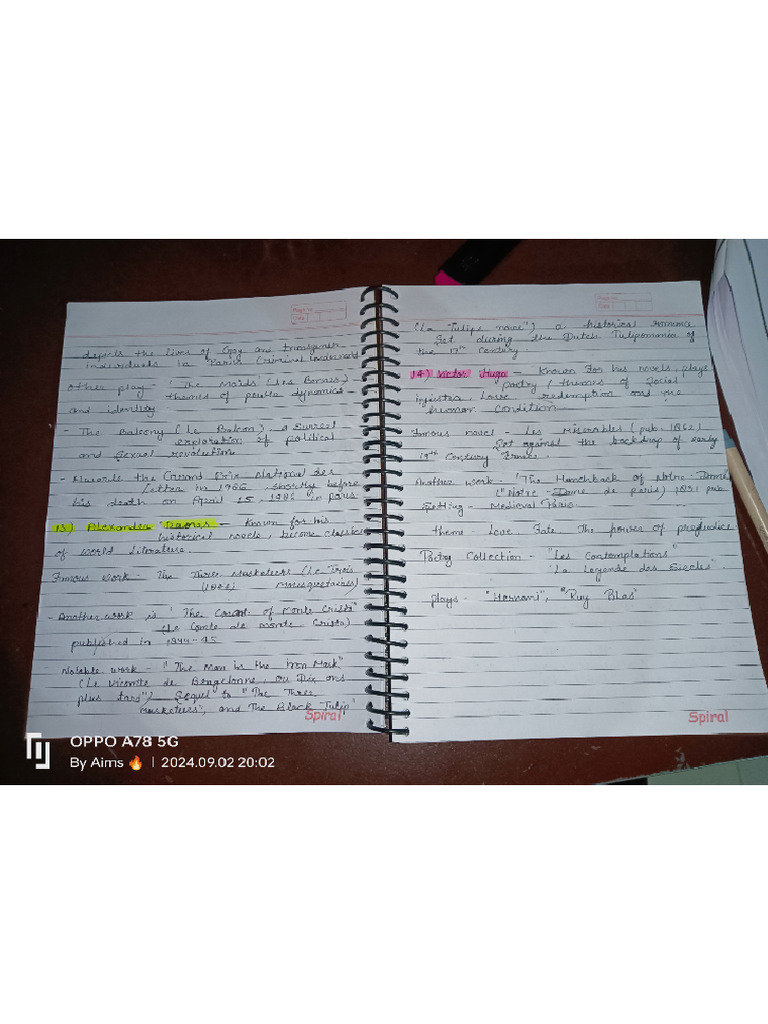 Page No.
Date
depicts the lives of Gay and transgender
individuals in "Paris Criminal underworld
Other play - 'The Maids' (Les Bonnes) -
themes of power dynamics
and identity
- The Balcony (Le Balcon) - a surreal
exploration of political
and sexual revolution.
- Awards the Grand Prix National des
letter in shortly before
his death on April 15, 1986 in paris.
13) Alexandre Dumas - Known for his
historical novels, become classics
of world literature.
Famous work - The Three Musketeers (Le Trois
Mousquetaires)
- Another work is 'The Count of Monte Cristo"
(Le Comte de Monte Cristo)
published in
Notable work - "The Man in the Iron Mask"
(Le Vicomte de ou Dix ans
plus tard") Sequel to "The Three
Musketeers", and The Black Tulip'
Spiral
Page No.
Date
(La Tulipe noire") a historical
Set during the Dutch Tulipomania of
the 17th Century
14) Victor Hugo - Known for his novels, plays
poetry / themes of Social
injustice, Love redemption and the
human Condition
Famous novel - Les Miserables (pub. 1862)
Set against the backdrop of early
19th Century France.
Another work - "The Hunchback of Notre-Dame
("Notre-Dame de Paris) 1831 pub
Setting - Medieval Paris.
theme Love Fate The power of prejudice
Poetry Collection - "Les Contemplations"
'La Legende des Siecles".
plays - "Hernani", "Ruy Blas"
Spiral
OPPO A78 5G
By Aims 🔥 | 2024.09.02 20:02